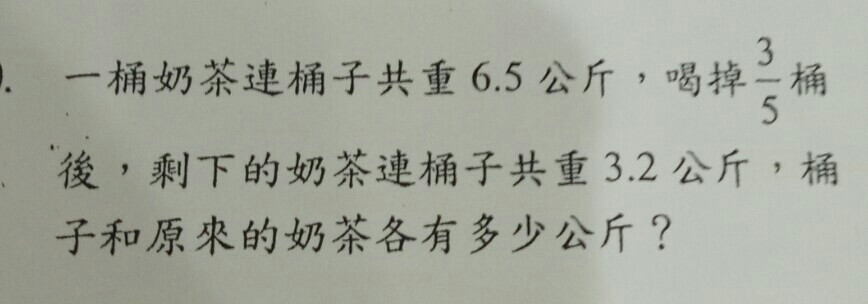 一桶奶茶連桶子共重 6.5 公斤，喝掉 3/5 桶
後，剩下的奶茶連桶子共重 3.2 公斤，桶
子和原來的奶茶各有多少公斤？